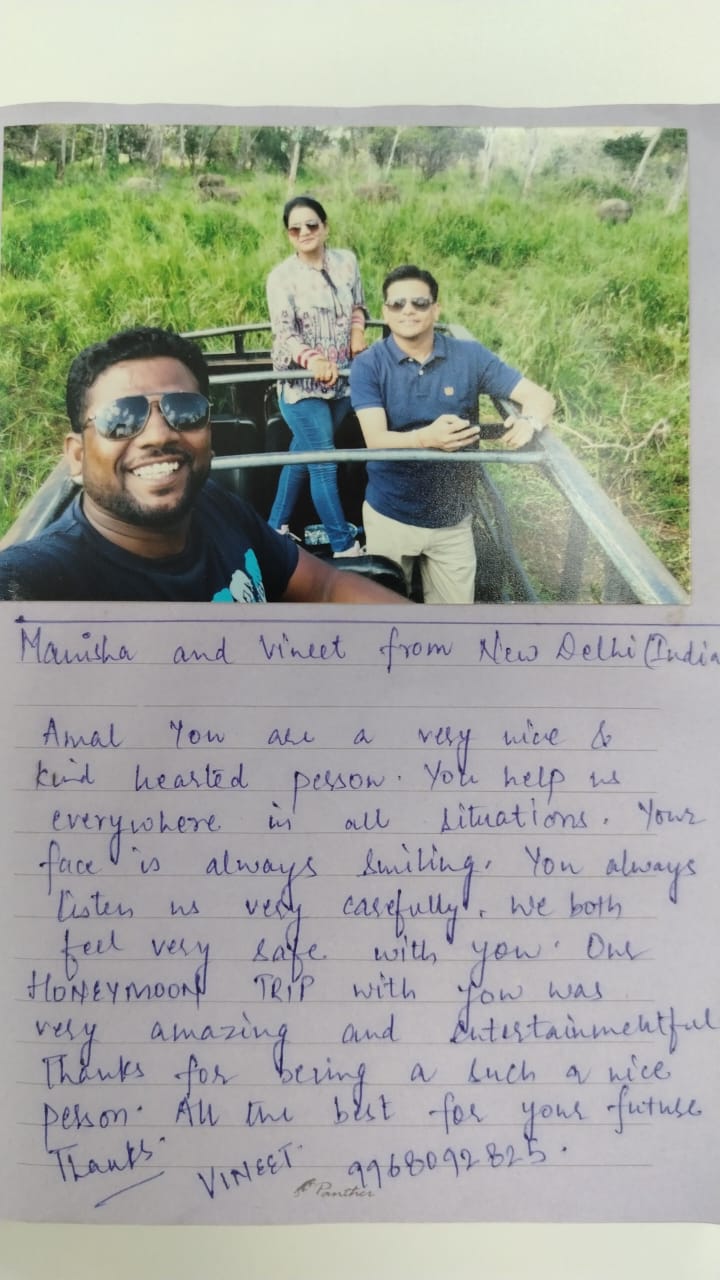 Manisha and Vineet from New Delhi (India
Amal You are a very nice &
kind hearted person. You help us
everywhere in all situations. Your
face is always smiling. You always
listen us very carefully. We both
feel very safe with you. Our
HONEYMOON TRIP with you was
very amazing and entertainmentful
Thanks for being a such a nice
person. All the best for your future
Thanks.
VINEET. 9968092825.
Panther